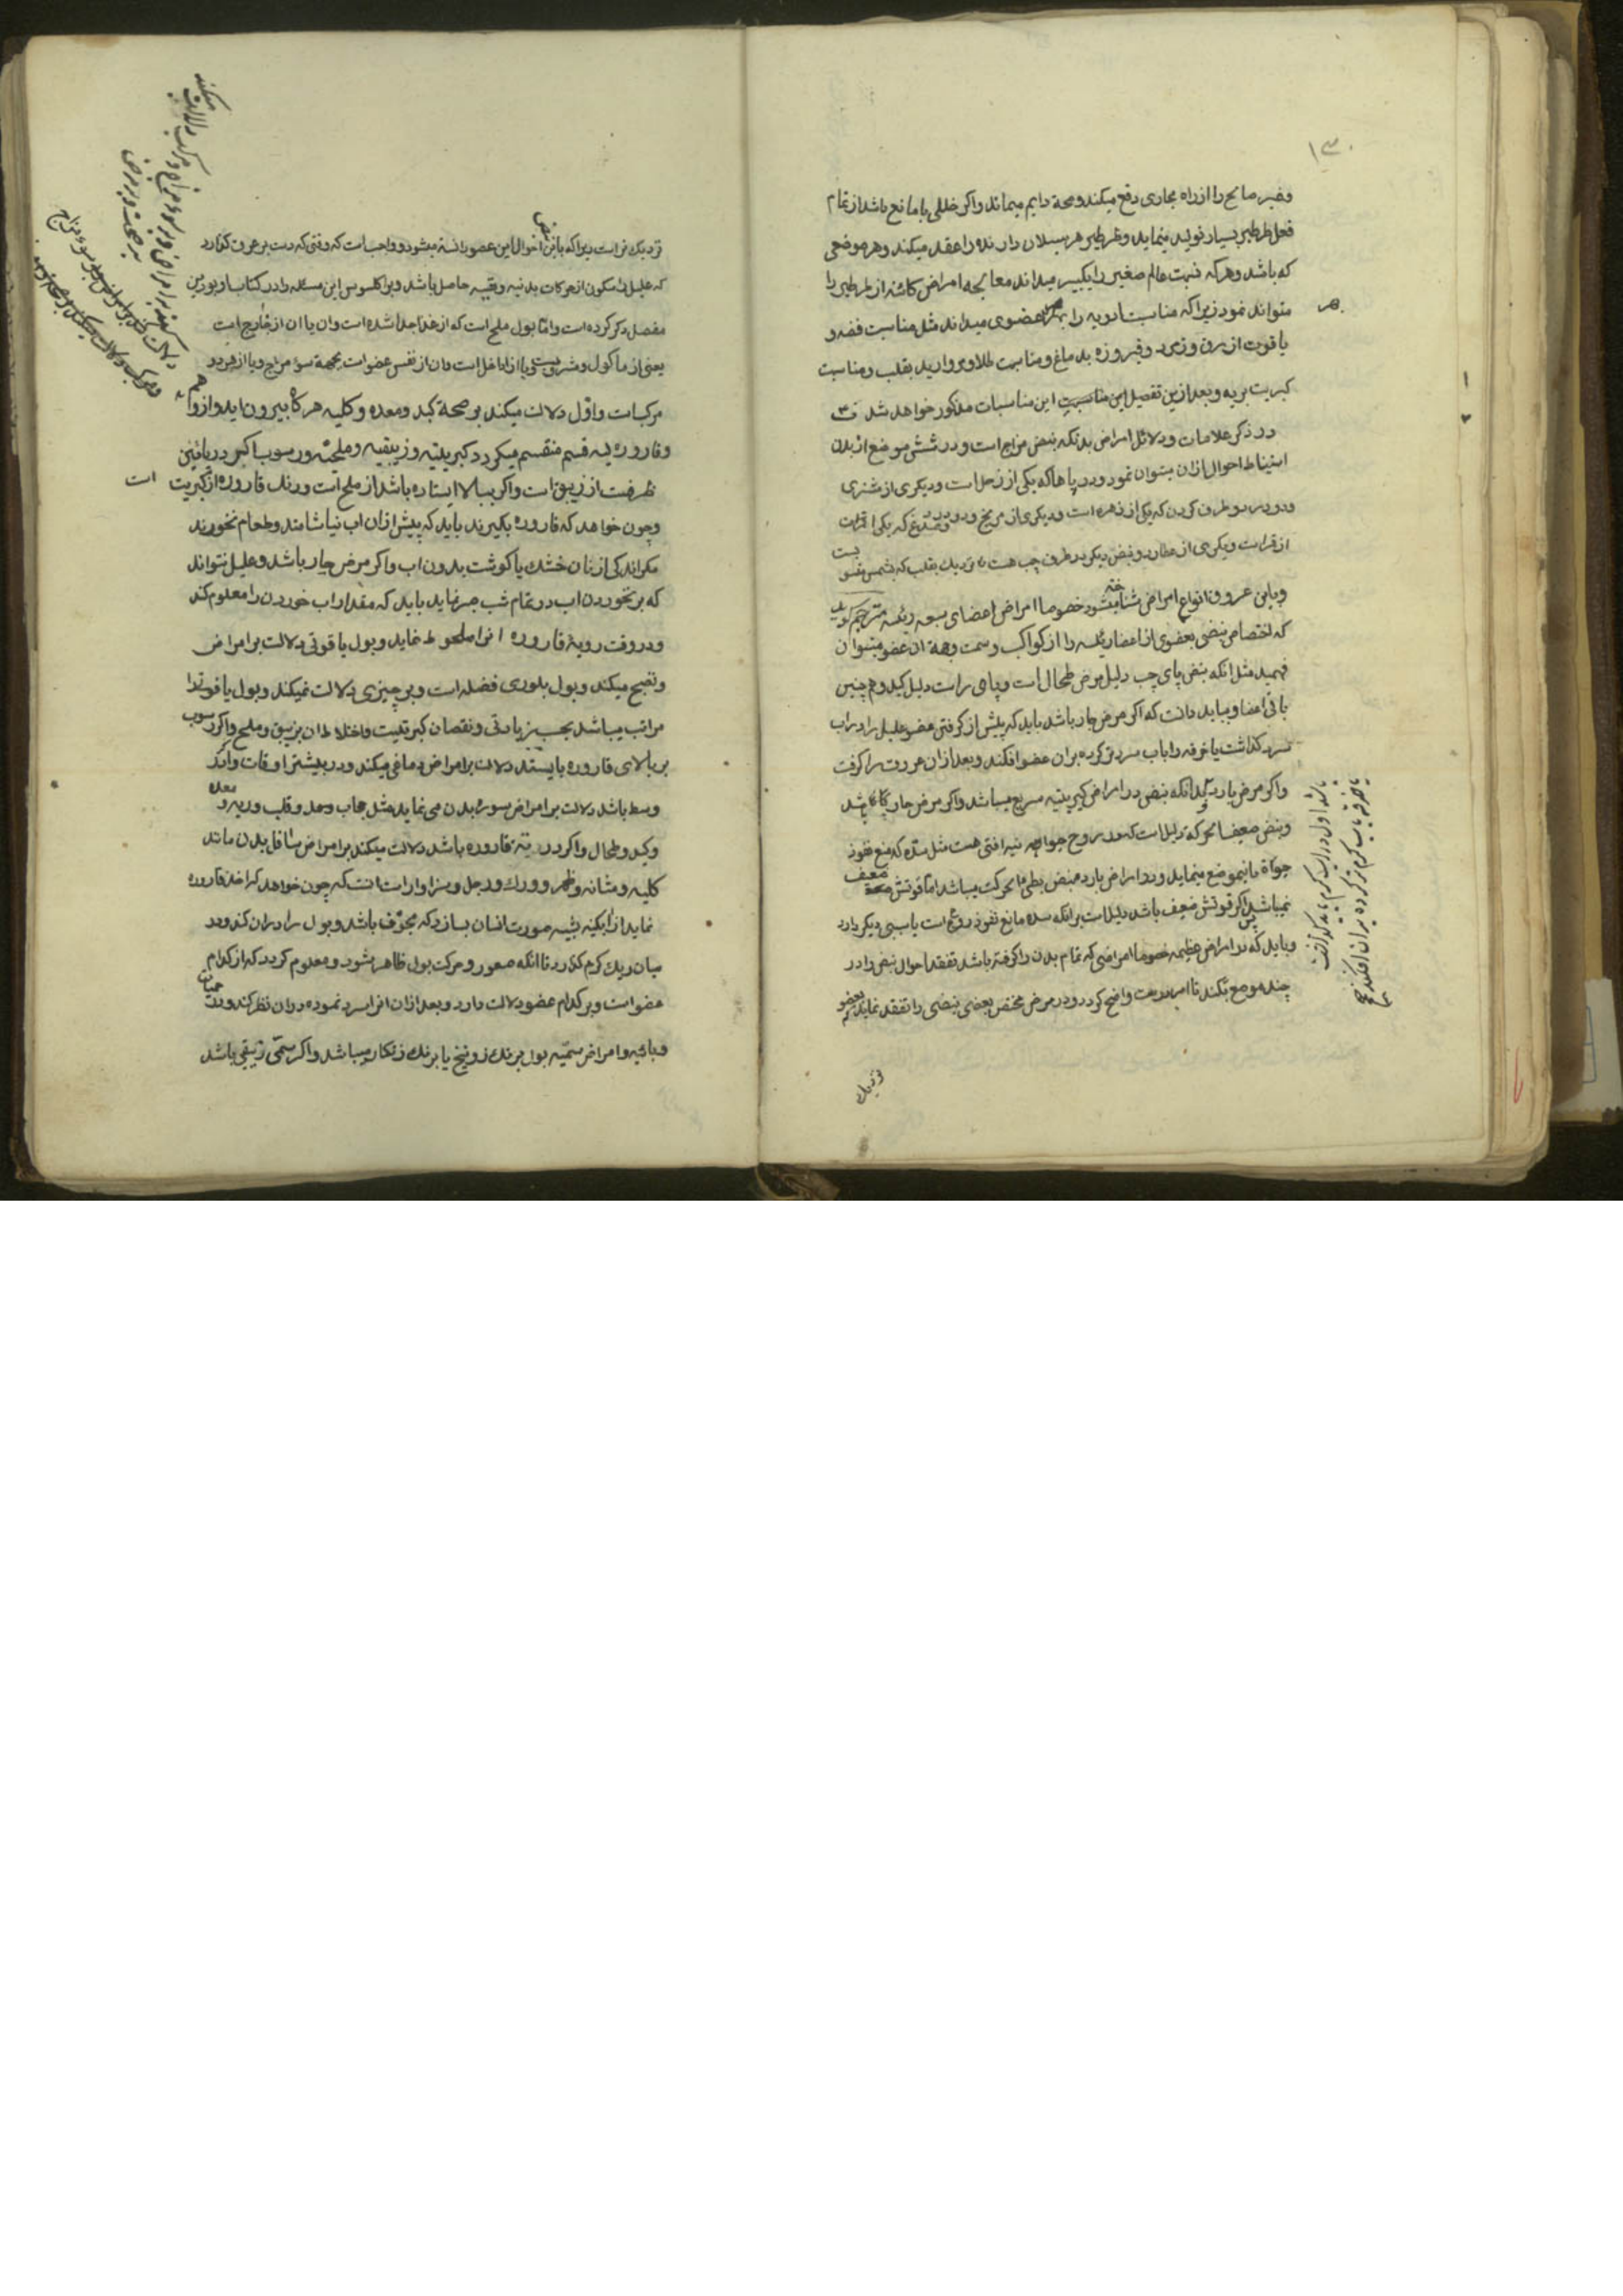 ۱۳۰
وغیر صالح را از راه مجاری دفع میکند وصحة دایم میماند واکر خللی یا مانع باشد از تمام
فعل طرطیر بسیار تولید مینماید وطرطیر هر سیلان دارنده را عقد میکند وهر موضعی
که باشد وهرکه نسبت عالم صغیر را بکبیر میداند معالجه امراض کائنه از طرطیر را
متواند نمود زیرا که مناسبت ادویه را بهر عضوی میداند مثل مناسبت فضه و
یاقوت ازرق وزمرد وفیروزه بدماغ ومناسبت طلا ومروارید بقلب ومناسبت
کبریت بریه وبعد ازین تفصیل این مناسبات مذکور خواهد شد ف ۳
در ذکر علامات ودلائل امراض بدانکه نبض مزاج است ودر شش موضع از بدن
استنباط احوال ازان میتوان نمود در پاها که یکی از زحل است ودیکری از مشتری
ودو در دو طرف کردن که یکی از زهره است ودیکری از مریخ ودو در صدغ که یکی
از قمر است ودیکری از عطارد ونبض دیکر در طرف چپ هست نزدیک بقلب که بشمس منسو
بست
وباین عروق انواع امراض شناخته میشود خصوصا امراض اعضای سبعه رئیسه مترجم کوید
که اختصاص نبضی بعضوی از اعضا رئیسه را از کواکب وسمت وجهة ان عضو میتوان
فهمید مثل انکه نبض پای چپ دلیل مرض طحال است وپای راست دلیل کبد وهمچنین
باقی اعضا وبباید دانست که اکر مرض حار باشد باید که پیش از کرفتن عضو علیل را در اب
سرد کذاشت یا خرقه را باب سرد تر کرده بران عضو افکند وبعد ازان عروق را کرفت
واکر مرض بارد بدانکه نبض در امراض کبریتیه سریع میباشد واکر مرض حار باشد
ونبض ضعیف الحرکة دلیل است که در روح حیوانیه نیز افتی هست مثل سده که منع نفوذ
حیوة بانموضع مینماید ودر امراض بارده نبض بطی الحرکت میباشد اما قوتش ضعیف
نمیباشد پس اکر قوتش ضعیف باشد دلیل است برانکه سده مانع نفوذ روح است یا سببی دیکر دارد
وباید که در امراض عظیمه خصوصا امراضی که تمام بدن را کرفته باشد تفقد احوال نبض را در
چند موضع بکند تا امر مرض واضح کردد ودر مرض مختص ببعضی نبضی را تفقد نماید که بعضو
نزدیک
باشد اول در اب کرم باید کذاشت
یا خرقه باب کرم تر کرده بران افکند صح
نزدیک تر است زیرا که باین نبض احوال این عضو دانسته میشود وواجب است که وقتی که دست بر عرق کذارد
که علیل را سکون از حرکات بدنیه ونفسیه حاصل باشد وبراکلسوس این مسئله را در کتاب
مفصل ذکر کرده است واما بول ملح است که از غذا جدا شده است وان یا از خارج است
یعنی از ماکول ومشروبست ویا از داخل است وان از نفس عضو است بجهة سوء مزاج ویا از هر دو
مرکبات واول دلالت میکند بر صحة کبد ومعده وکلیه هرکاه بیرون اید
وقاروره بسه قسم منقسم میکردد کبریتیه وزیبقیه وملحیه ورسوب اکر در پائین
ظرفست از زیبق است واکر ببالا ایستاده باشد از ملح است ورنک قاروره از کبریت است
وچون خواهد که قاروره بکیرند باید که پیش ازان اب نیاشامند وطعام نخورند
مکر اندکی از نان خشک یا کوشت بدون اب واکر مرض حار باشد وعلیل نتواند
که بر نخوردن اب در تمام شب صبر نماید باید که مقدار اب خوردن را معلوم کند
ودر وقت رویة قاروره انرا ملحوظ نماید وبول یاقوتی دلالت بر امراض
ونضج میکند وبول بلوری فضله است وبر چیزی دلالت نمیکند وبول یاقوتی را
مراتب میباشد بحسب زیادتی ونقصان کبریتیت واختلاط ان بزیبق وملح واکر رسوب
بر بالای قاروره بایستد دلالت بر امراض دماغی میکند ودر بیشتر اوقات واکر
وسط باشد دلالت بر امراض سورة بدن می نماید مثل حجاب ومعده وقلب وریه
وکبد وطحال واکر در ته قاروره باشد دلالت میکند بر امراض اسافل بدن مانند
کلیه ومثانه وظهر وورک ورجل وسزاوار انست که چون خواهد که اخذ قاروره
نماید از ابکینه شبیه صورت انسان بسازد که مجوف باشد وبول را دران کند ودر
میان ریک کرم کذارد تا انکه صعود وحرکت بول ظاهر شود ومعلوم کردد که از کدام
عضو است وبر کدام عضو دلالت دارد وبعد ازان انرا سرد نموده دران نظر کند ودر حمیات
وبائیه وامراض سمیه بول برنک زرنیخ یا برنک زنکار میباشد واکر سمی زیبقی باشد